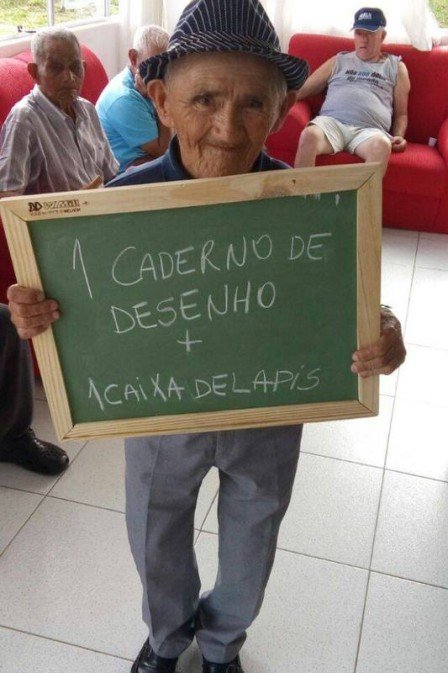 1 CADERNO DE
DESENHO
+
1 CAIXA DE LAPIS